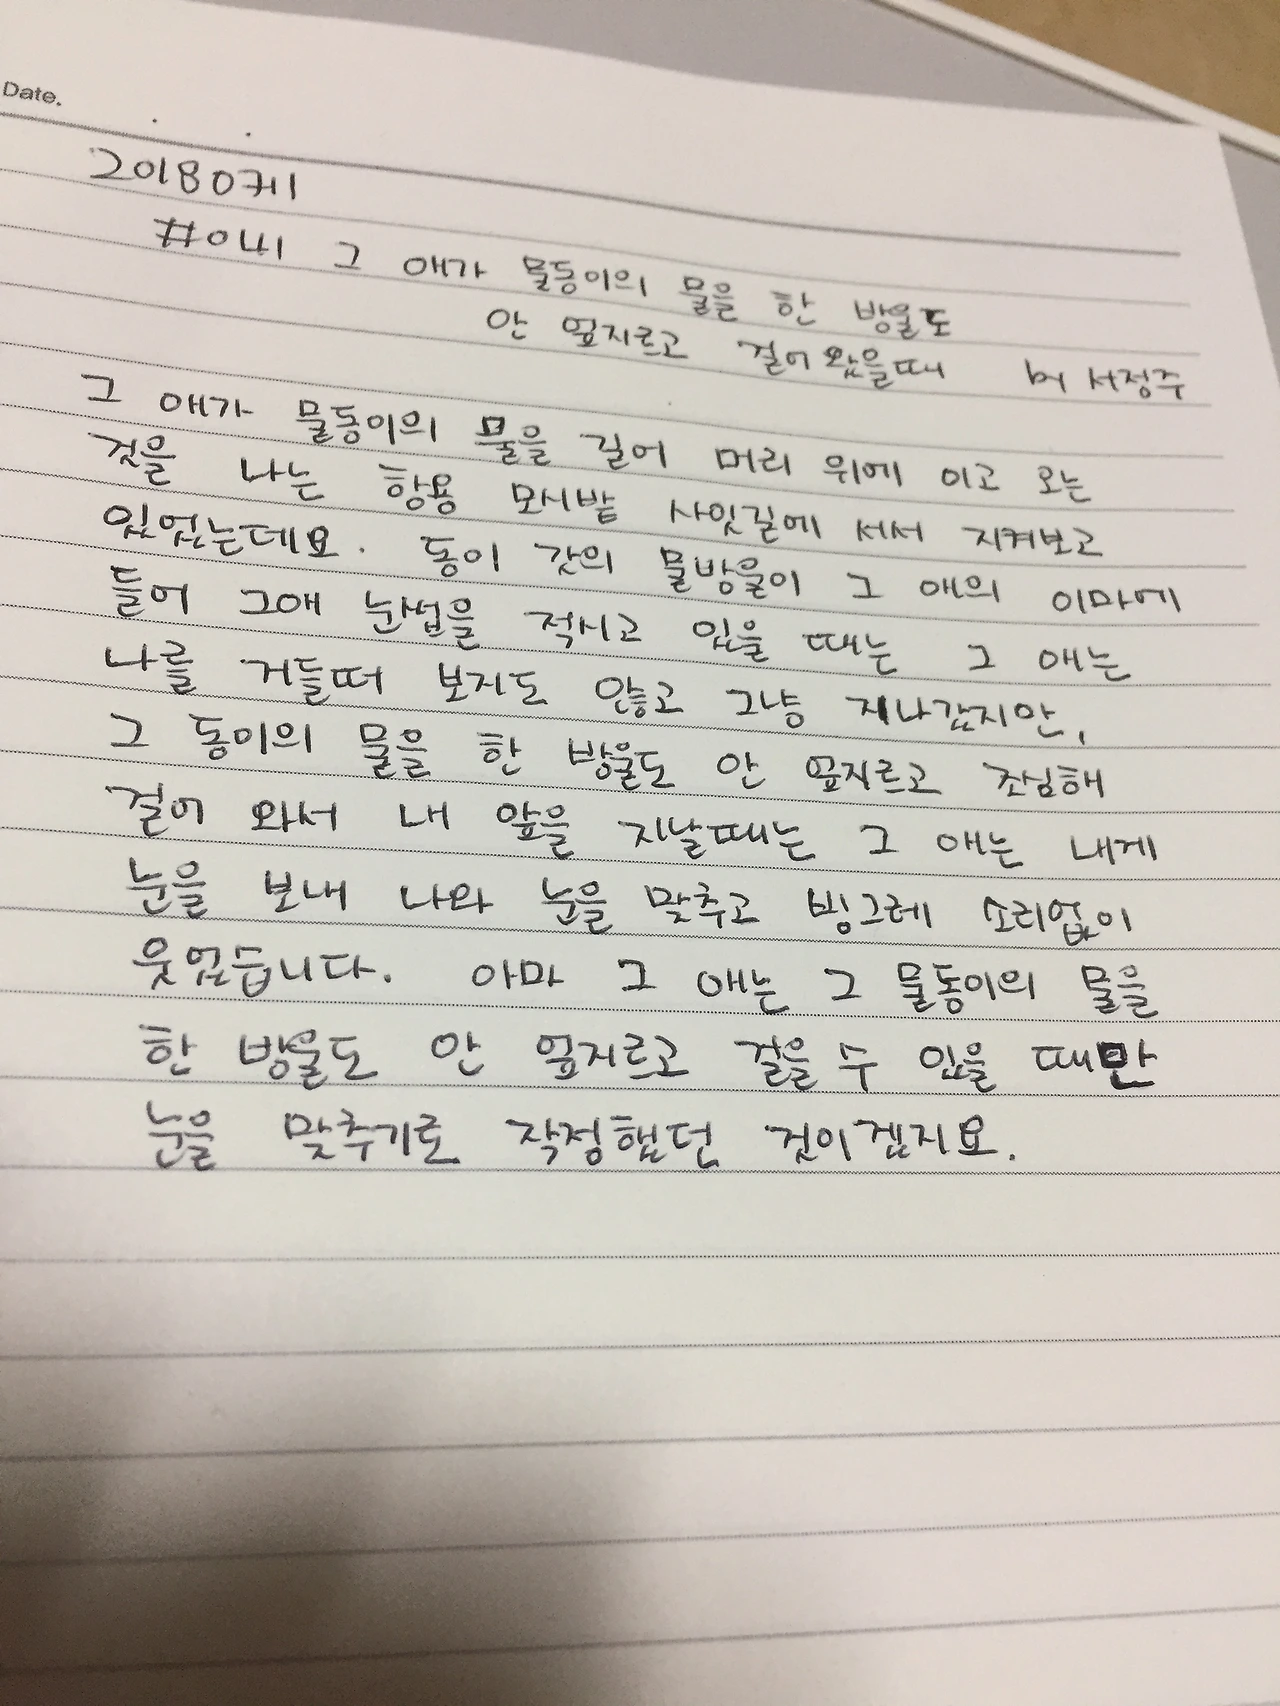 Date.
20180711
#041 그 애가 물동이의 물을 한 방울도
안 엎지르고 걸어왔을때 by 서정주
그 애가 물동이의 물을 길어 머리 위에 이고 오는
것을 나는 항용 모시밭 사잇길에 서서 지켜보고
있었는데요. 동이 갓의 물방울이 그 애의 이마에
들어 그애 눈썹을 적시고 있을 때는 그 애는
나를 거들떠 보지도 않고 그냥 지나갔지만,
그 동이의 물을 한 방울도 안 엎지르고 조심해
걸어 와서 내 앞을 지날때는 그 애는 내게
눈을 보내 나와 눈을 맞추고 빙그레 소리없이
웃었습니다. 아마 그 애는 그 물동이의 물을
한 방울도 안 엎지르고 걸을 수 있을 때만
눈을 맞추기로 작정했던 것이겠지요.